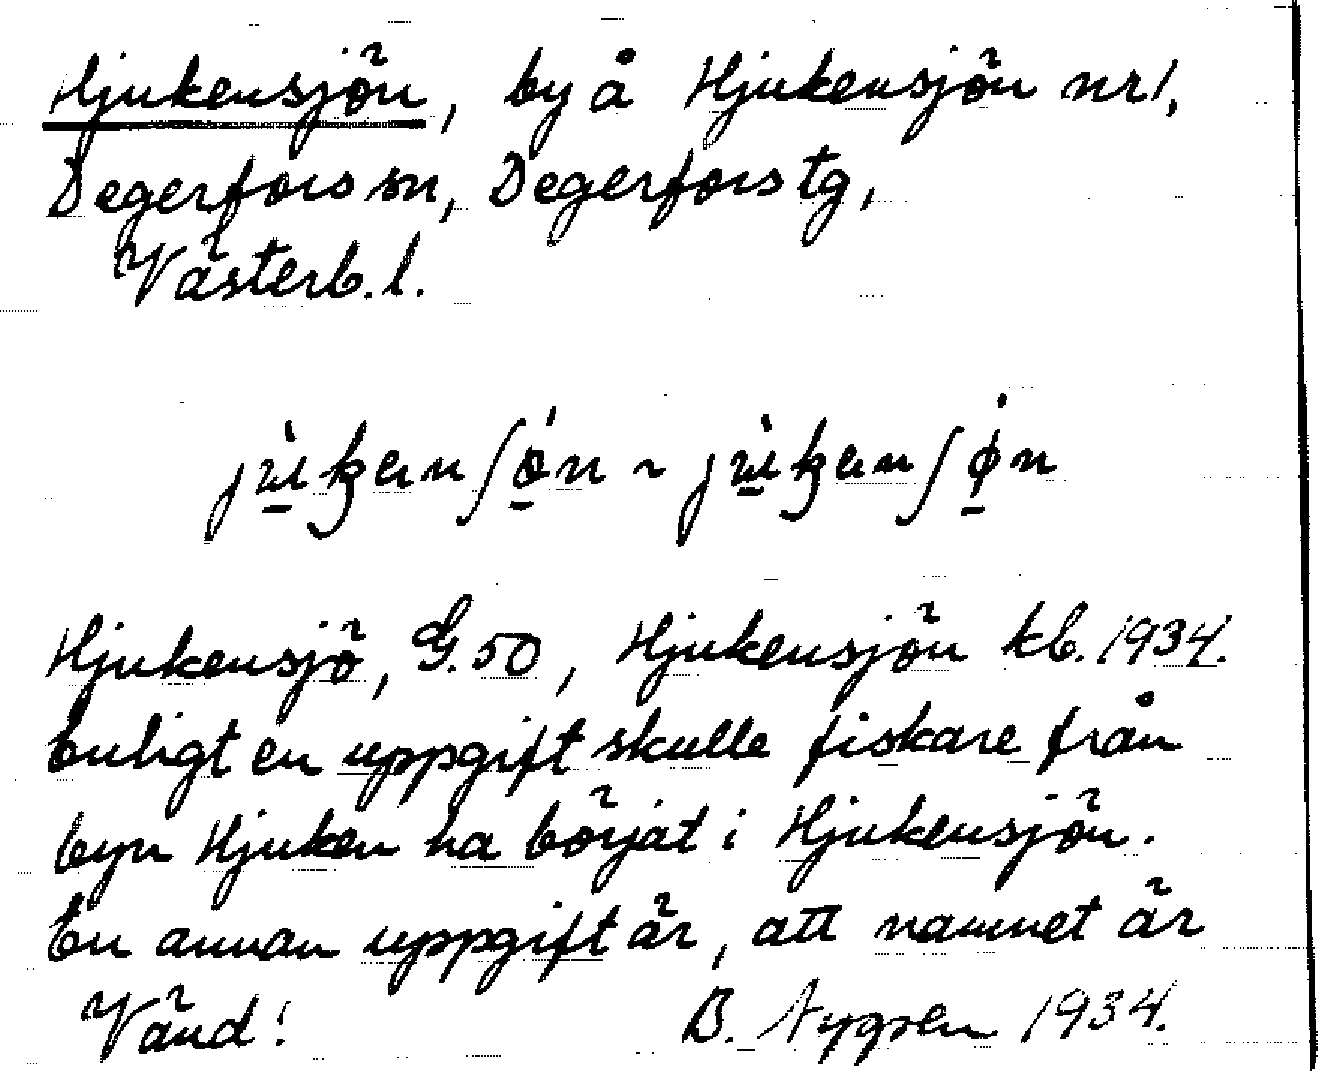 Hjukensjön, by å Hjukensjön nr 1,
Degerfors sn, Degerfors tg,
Västerb. l.
Hjukensjö, G. 50, Hjukensjön kb. 1934.
Enligt en uppgift skulle fiskare från
byn Hjuken ha börjat i Hjukensjön.
En annan uppgift är, att namnet är
Vänd! B. Nygren 1934.